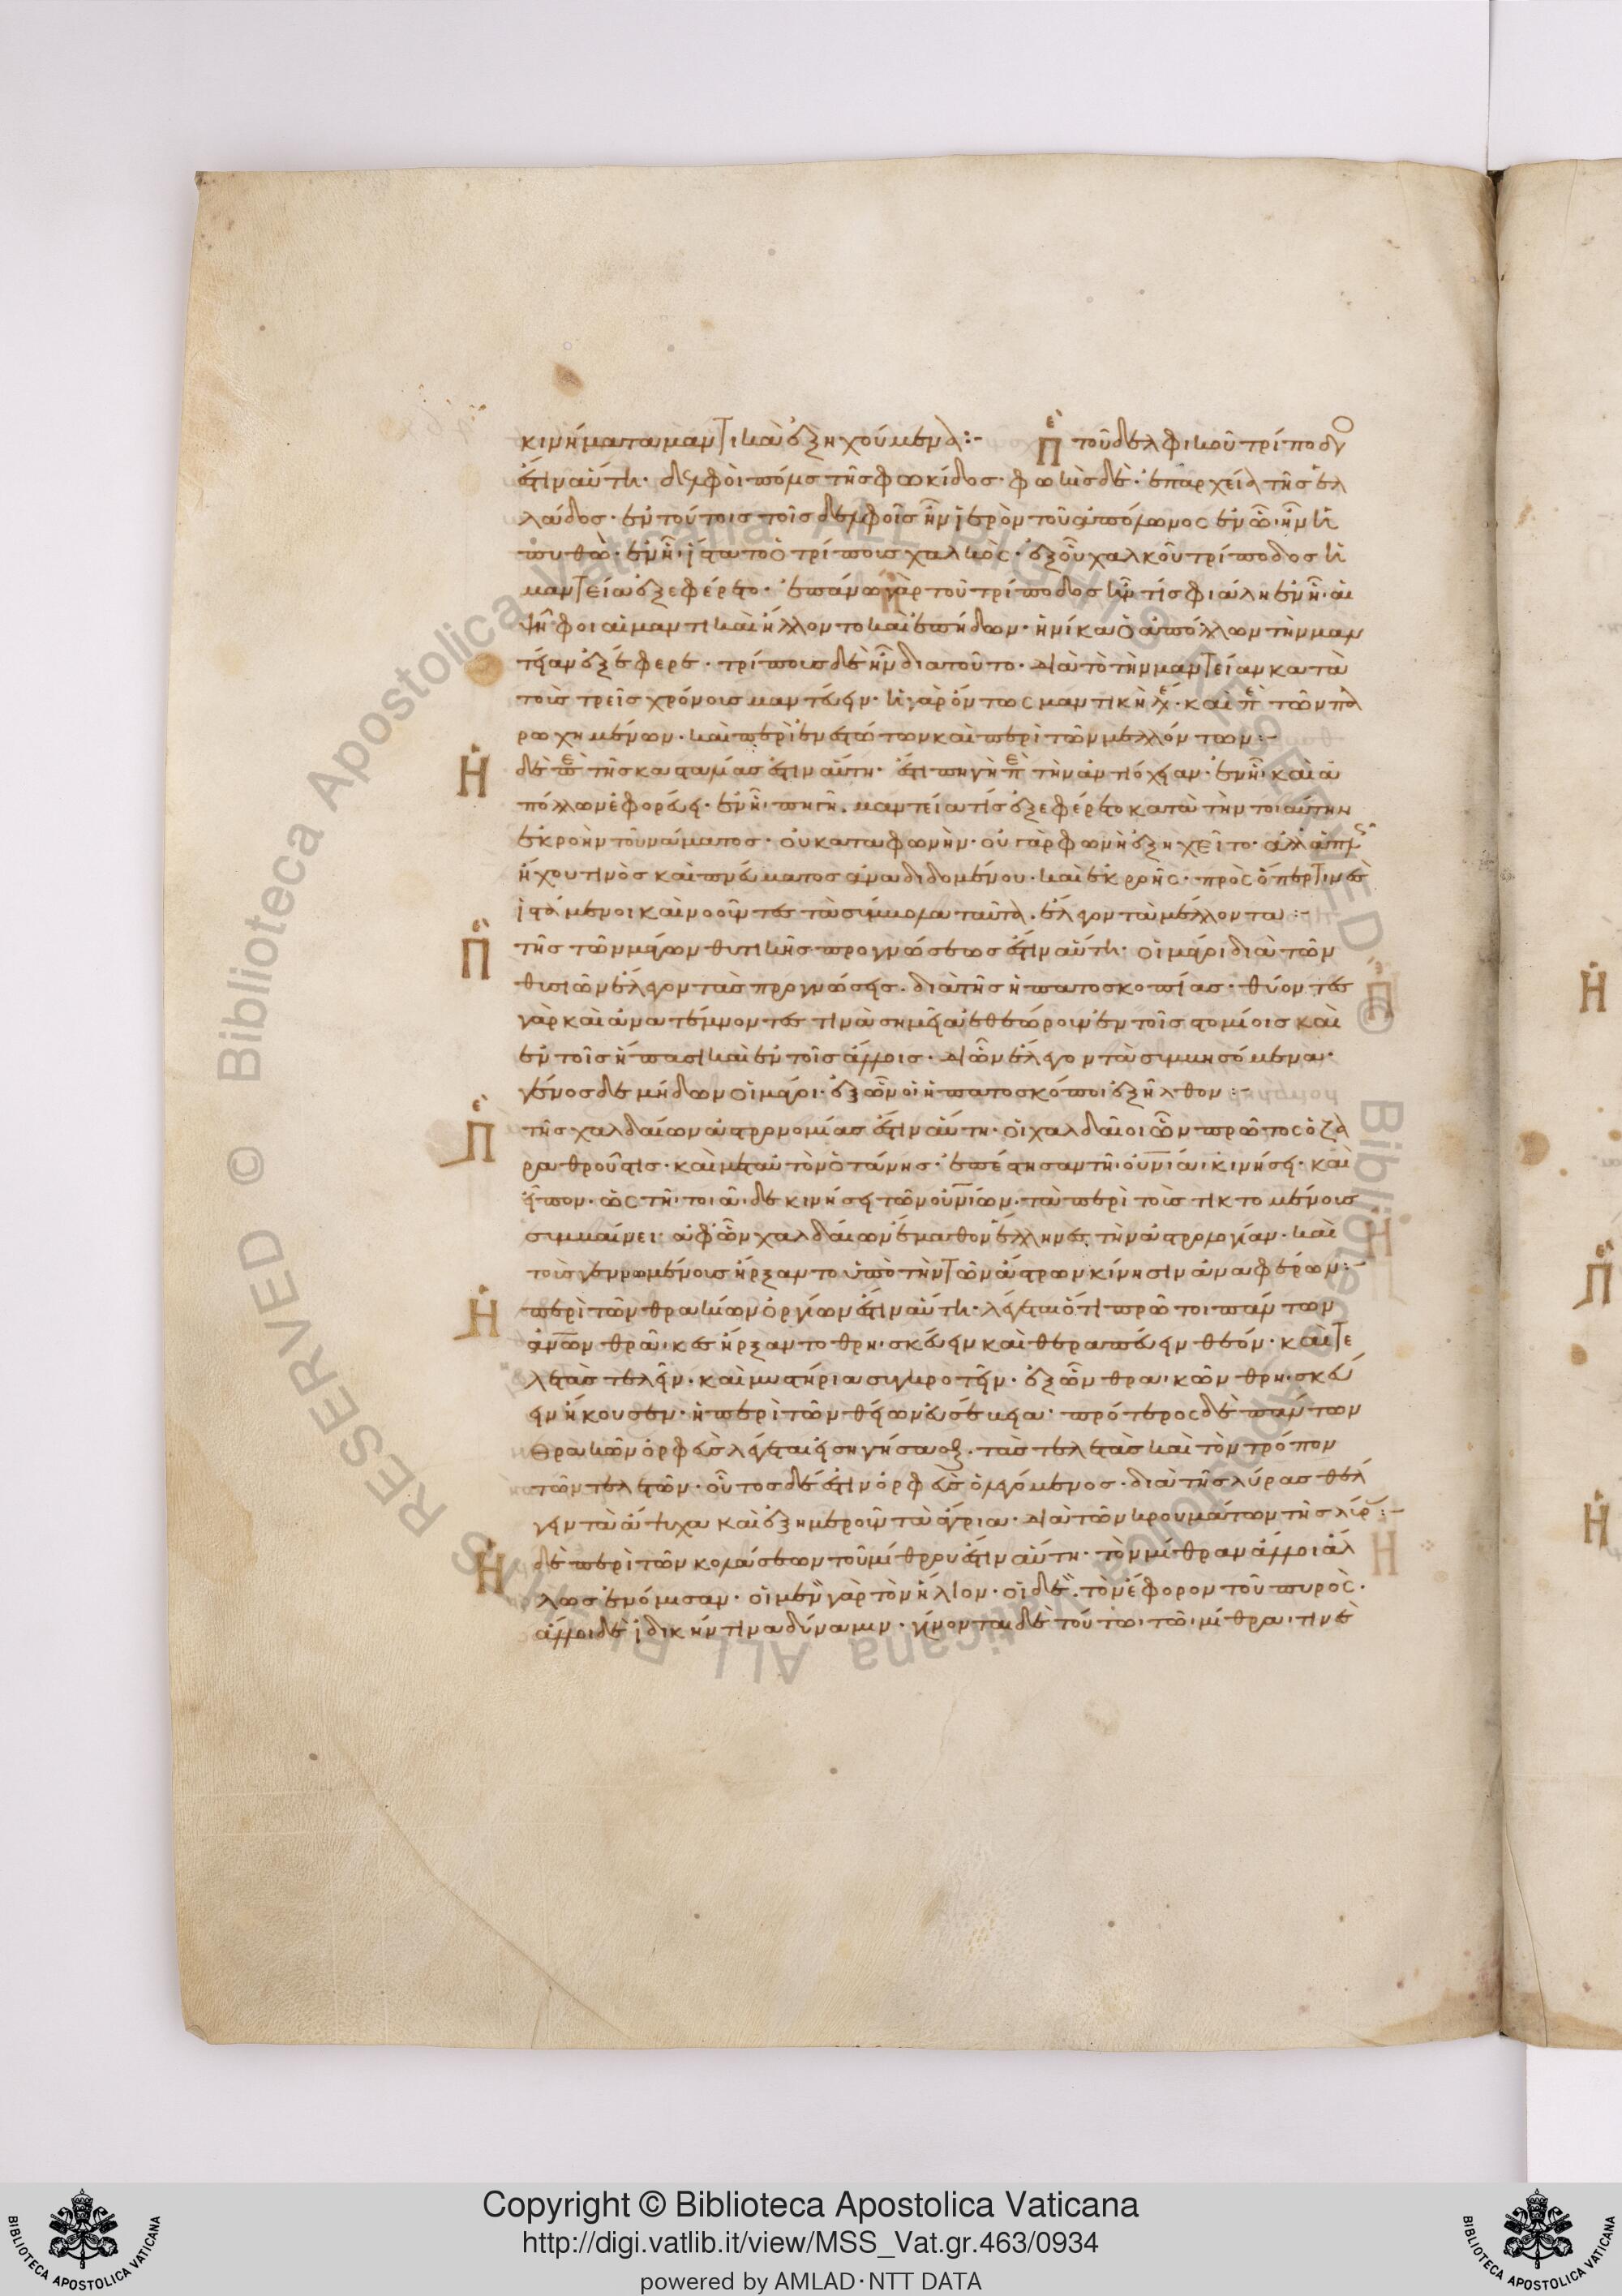 κινήματα μαντικὰ ἐξηχούμενα :- Π τοῦ δελφικοῦ τρίποδο
ἐστὶν αὕτη · δελφοὶ πόλις τῆς φωκίδος · φωκὶς δὲ · ἐπαρχεία τῆς ἑλ
λάδος · ἐν τούτοις τοῖς δελφοῖς ἦν ἱερὸν τοῦ ἀπόλλωνος ἐν ᾧ ἦν ἡ
πυθώ · ἐν ᾗ ἵστατο ὁ τρίπους χαλκὸς · ἐξ οὗ χαλκοῦ τρίποδος ἡ
μαντεία ἐξεφέρετο · ἐπάνω γὰρ τοῦ τρίποδος ἦν τίς φιάλη ἐν ᾗ αἱ
ψῆφοι αἱ μαντικαὶ ἥλλοντο καὶ ἐπήδων · ἡνίκα ὁ ἀπόλλων τὴν μαν
τείαν ἐξέφερε · τρίπους δὲ ἦν διὰ τοῦτο · διὰ τὸ τὴν μαντείαν κατὰ
τοὺς τρεῖς χρόνους μαντεύειν · ἡ γὰρ ὄντως μαντικὴ · καὶ τῶν πα
ρωχημένων · καὶ περὶ ἐνεστώτων καὶ περὶ τῶν μελλόντων :-
Ἡ δὲ π τῆς κασταλίας ἐστὶν αὕτη · ἔστι πηγὴ π τὴν ἀντιόχειαν · ἐν ᾗ καὶ ἀ
πόλλων ἐφορεύει · ἐν ᾗ πηγῇ · μαντεία τίς ἐξεφέρετο κατὰ τὴν τοιαύτην
ἐκροὴν τοῦ νάματος · οὐ κατὰ φωνὴν · οὐ γὰρ φωνὴ ἐξηχεῖτο · ἀλλ
ἤχου τινὸς καὶ πνεύματος ἀναδιδομένου · καὶ ἐκροῆς · πρὸς ὅπερ τινὲς
ἱστάμενοι καὶ νοοῦντες τὰ σύμβολα ταῦτα · ἔλεγον τὰ μέλλοντα :-
Π τῆς τῶν μάγων θυτικῆς προγνώσεως ἐστὶν αὕτη · οἱ μάγοι διὰ τῶν
θυσιῶν ἔλεγον τὰς προγνώσεις · διὰ τῆς ἡπατοσκοπίας · θύοντες
γὰρ καὶ ἀνατέμνοντες τινὰ σημεῖα ἐθεώρουν ἐν τοῖς τομίοις καὶ
ἐν τοῖς ἥπασι καὶ ἐν τοῖς ἄλλοις · δι ὧν ἔλεγον τὰ συμβησόμενα ·
γένος δὲ μήδων οἱ μάγοι · ἐξ ὧν οἱ ἡπατοσκόποι ἐξῆλθον :-
Π τῆς χαλδαίων ἀστρονομίας ἐστὶν αὕτη · οἱ χαλδαῖοι ὧν πρῶτος ὁ ζο
ραθρούστις · καὶ μετ αὐτὸν ὀστάνης · ἐπέστησαν τῇ οὐνίαι κινήσει · καὶ
εἶπον · ὡς τῇ τοιᾷδε κινήσει τῶν οὐνίων · τὰ περὶ τοὺς τικτομένους
συμβαίνει · ἀφ ὧν χαλδαίων ἔμαθον ἕλληνες τὴν ἀστρολογίαν · καὶ
τοὺς γεννωμένους ἤρξαντο ὑπὸ τὴν τῶν ἄστρων κίνησιν ἀναφέρων :-
Ἡ περὶ τῶν θρακίων ὀργίων ἐστὶν αὕτη · λέγεται ὅτι πρῶτοι πάντων
ἀνων θρᾷκες ἤρξαντο θρησκεύειν καὶ θεραπεύειν θεόν · καὶ τε
λετὰς τελεῖν · καὶ μυστήρια συγκροτεῖν · ἐξ ὧν θρακῶν θρησκεύ
ειν ἤκουσεν · ἡ περὶ τῶν θείων εὐσέβεια · πρότερος δὲ πάντων
θρακῶν ὀρφεὺς λέγεται εἰσηγήσασθαι · τὰς τελετὰς καὶ τὸν τρόπον
τῶν τελετῶν · οὗτος δέ ἐστιν ὀρφεὺς ὁ λεγόμενος · διὰ τῆς λύρας θέλ
γειν τὰ ἄψυχα καὶ ἐξημεροῦν τὰ ἄγρια · διὰ τῶν κρουμάτων τῆς λύρ :-
Ἡ δὲ περὶ τῶν κολάσεων τοῦ μίθρου ἐστὶν αὕτη · τὸν μίθραν ἄλλοι ἄλ
λως ἐνόμισαν · οἱ μὲν γὰρ τὸν ἥλιον · οἱ δὲ · τὸν ἔφορον τοῦ πυρὸς ·
ἄλλοι δὲ ἰδικήν τινα δύναμιν · γίνονται δὲ τούτω τῶ μίθρα τινὲς
Copyright © Biblioteca Apostolica Vaticana
http://digi.vatlib.it/view/MSS_Vat.gr.463/0934
powered by AMLAD · NTT DATA
BIBLIOTECA APOSTOLICA VATICANA
BIBLIOTECA APOSTOLICA VATICANA
© Biblioteca Apostolica Vaticana ALL RIGHTS RESERVED
© Biblioteca Apostolica Vaticana ALL RIGHTS RESERVED